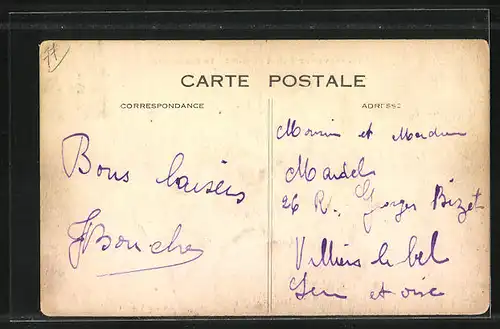 CARTE POSTALE
CORRESPONDANCE
ADRESSE
Bons baisers
Bouche
Monsieur et Madame
26 R. Georges Bizet
Villiers le bel
Seine et oise